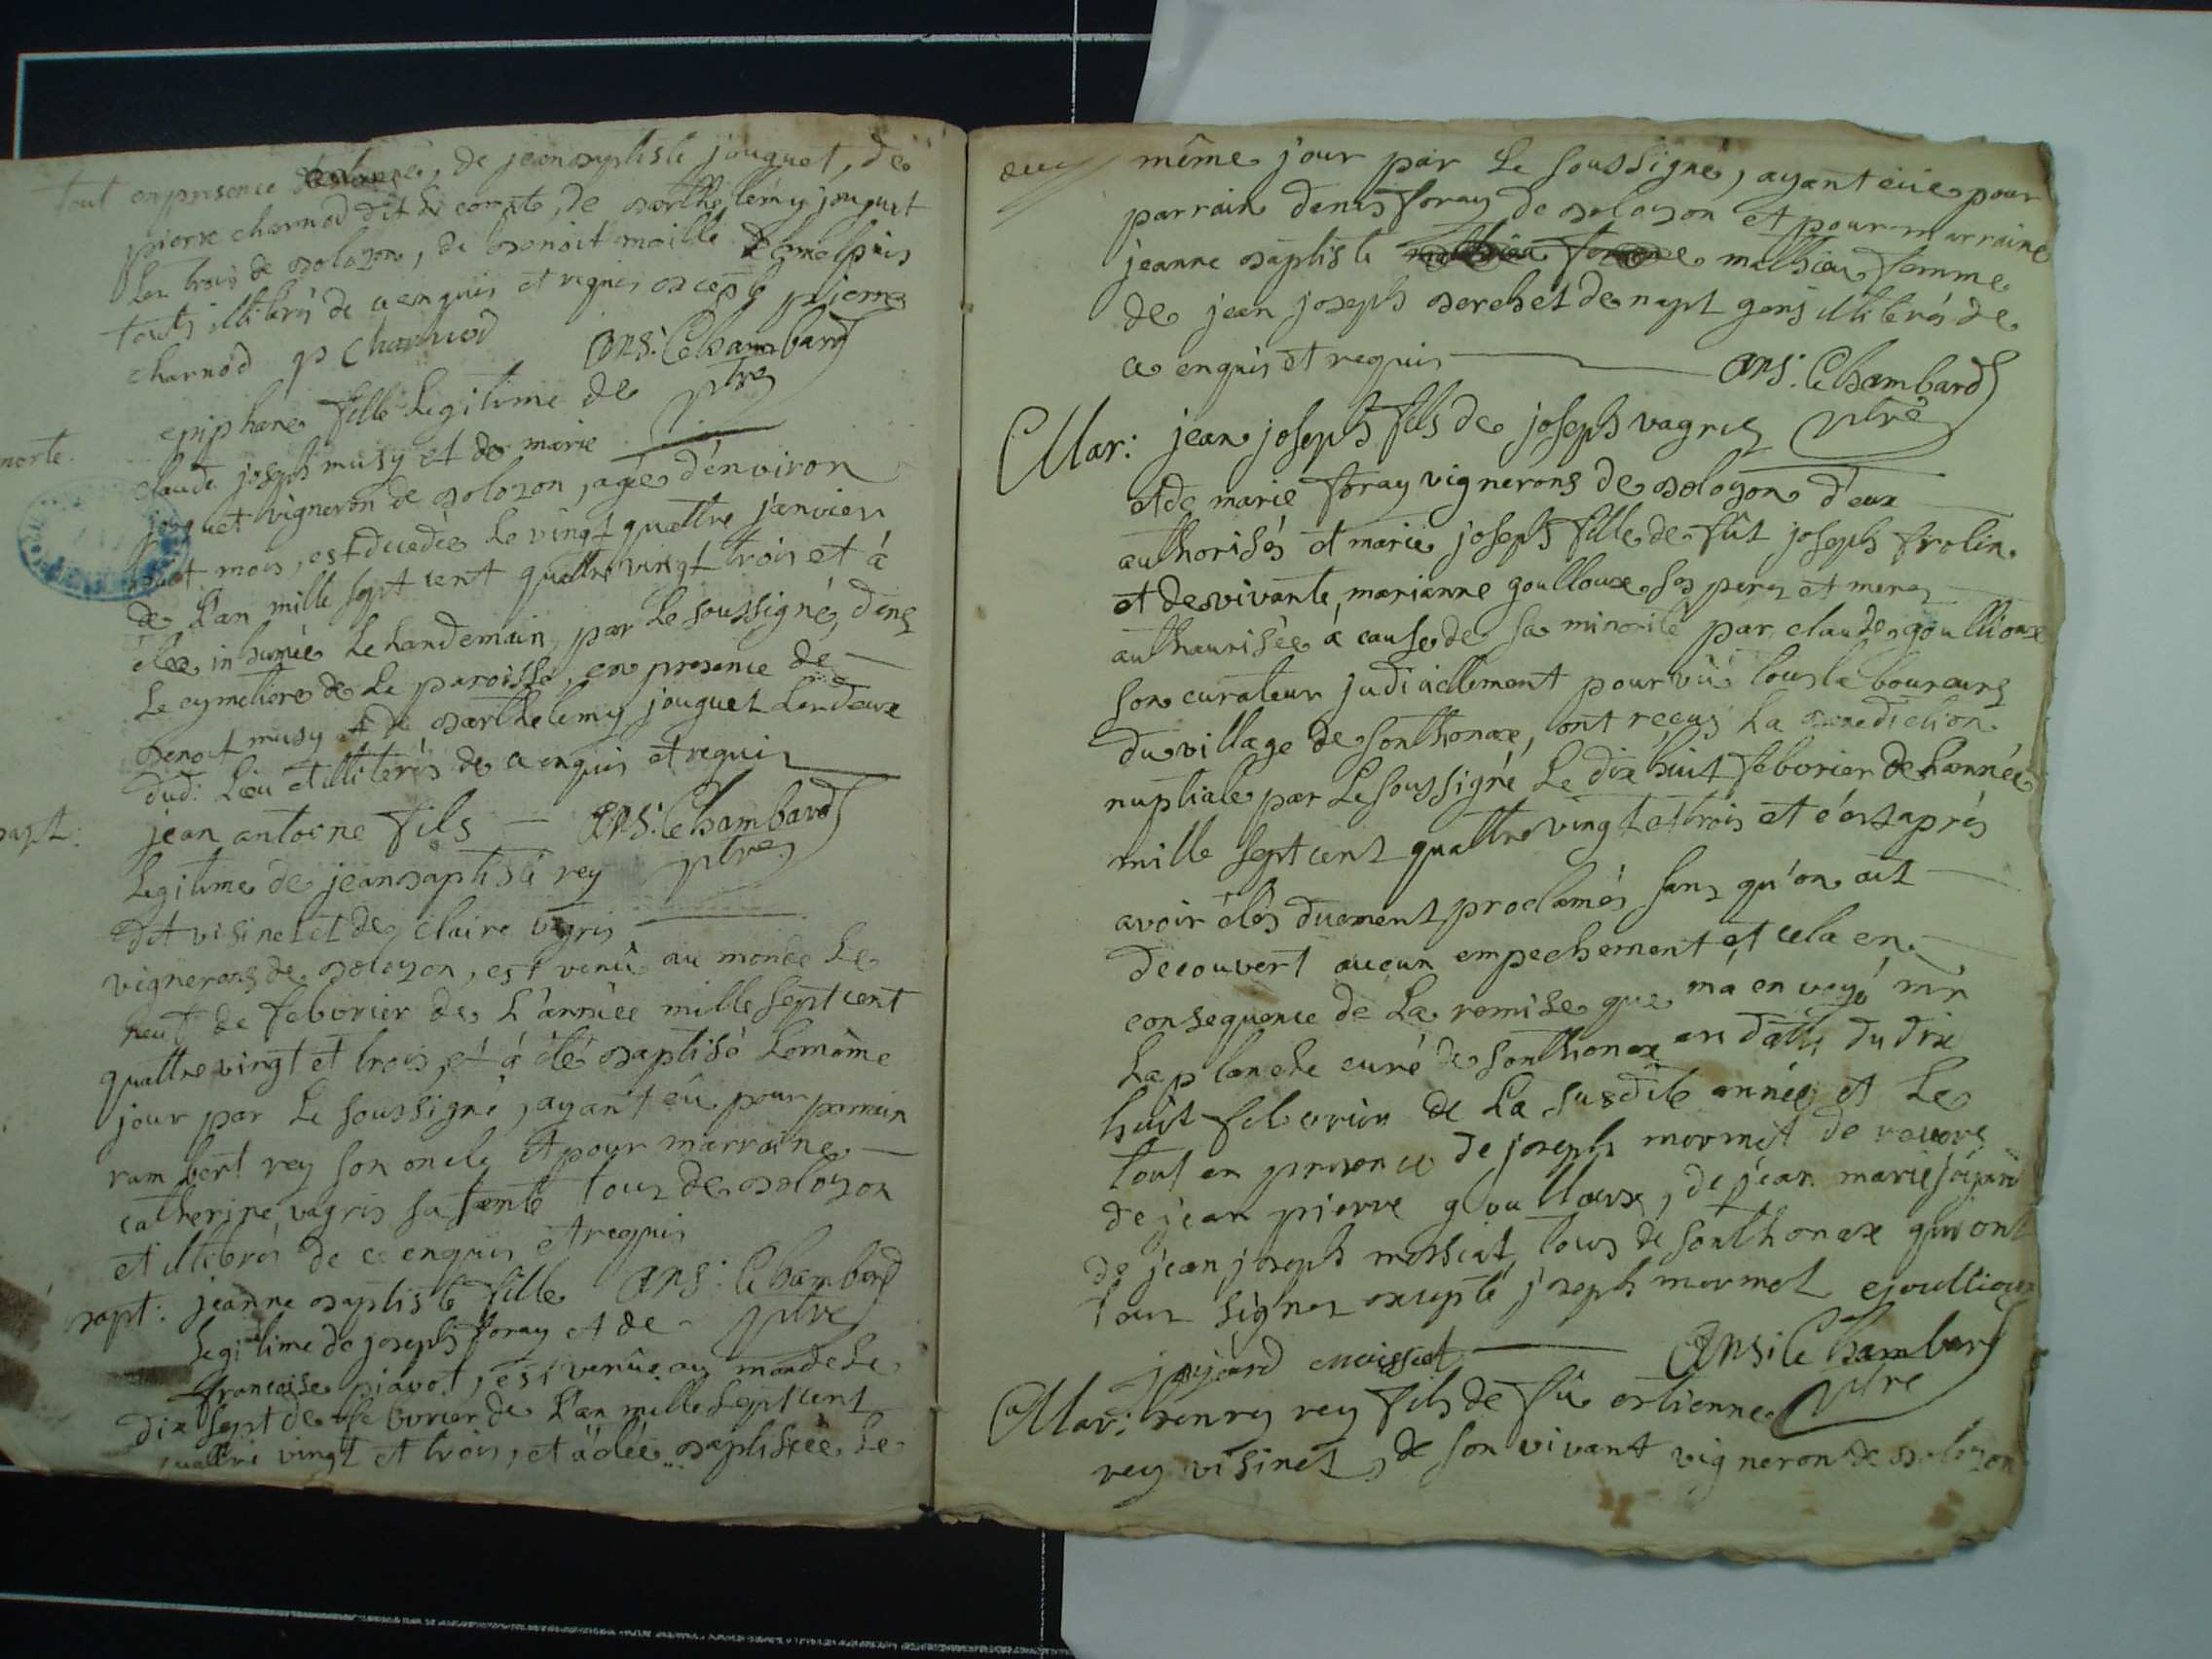 tout en presence de jean baptiste jouguet, de
pierre charnod dit le comte, de barthelemy jouguet
les trois de bolozon, de benoit maille
touts illiterés de ce enquis et requis excepté pierre
charnod p charnod ans: Chambard
ptre
morte. epiphane fille legitime de
claude joseph musy et de marie
jouguet vigneron de bolozon, agée d'environ
huit mois, est decedée le vingt quattre janvier
de l'an mille sept cent quattre vingt trois et à
étée inhumée le landemain par le soussigné, dans
le cymetiere de la paroisse, en presence de
benoit musy et de barthelemy jouguet les deux
dud: lieu et illiterés de ce enquis et requis
bapt: jean antoine fils ans: Chambard
ptre
legitime de jean baptiste rey
dit visinet et de claire vagris
vignerons de bolozon, est venû au monde le
neuf de febvrier de l'année mille sept cent
quattre vingt et trois, et à été baptisé le même
jour par le soussigné, ayant eû pour parrain
rambert rey son oncle et pour marraine
catherine vagris sa tante tous de bolozon
et illiterés de ce enquis et requis
bapt: jeanne baptiste fille ans: Chambard
ptre
legitime de joseph foray et de
francoise piavot, est venüe au monde le
dix sept de febvrier de l'an mille sept cent
quattre vingt et trois, et à étée baptisée le
même jour par le soussigné, ayant eüe pour
parrain denis foray de bolozon et pour marraine
jeanne baptiste mathieu femme
de jean joseph berchet de napt gens illiterés de
ce enquis et requis ans: Chambard
ptre
Mar: jean joseph fils de joseph vagris
et de marie foray vignerons de bolozon d'eux
authorisés et marie joseph fille de fût joseph frolin
et de vivante, marianne goulloux ses peres et meres
authaurisée à cause de sa minorité par claude goullioux
son curateur judiciellement pourvû tous laboureurs
du village de sonthonax, ont reçus la benediction
nuptiale par le soussigné le dix huit febvrier de l'année
mille sept cent quattre vingt et trois et c'est après
avoir étés duement proclamés sans qu'on ait
decouvert aucun empechement, et cela en
consequence de la remise que m'a envoyé mr
laplanche curé de sonthonax en datte du dix
huit febvrier de la susdite année et le
tout en presence de joseph mermet de
de jean pierre goulloux, de jean marie jojard
de jean joseph moissiat, tous de sonthonax qui ont
tous signés excepté joseph mermet gjoullioux
jojard moissiat ans: Chambard
ptre
Mar: henry rey fils de fû estienne
rey visinet, de son vivant vigneron de bolozon